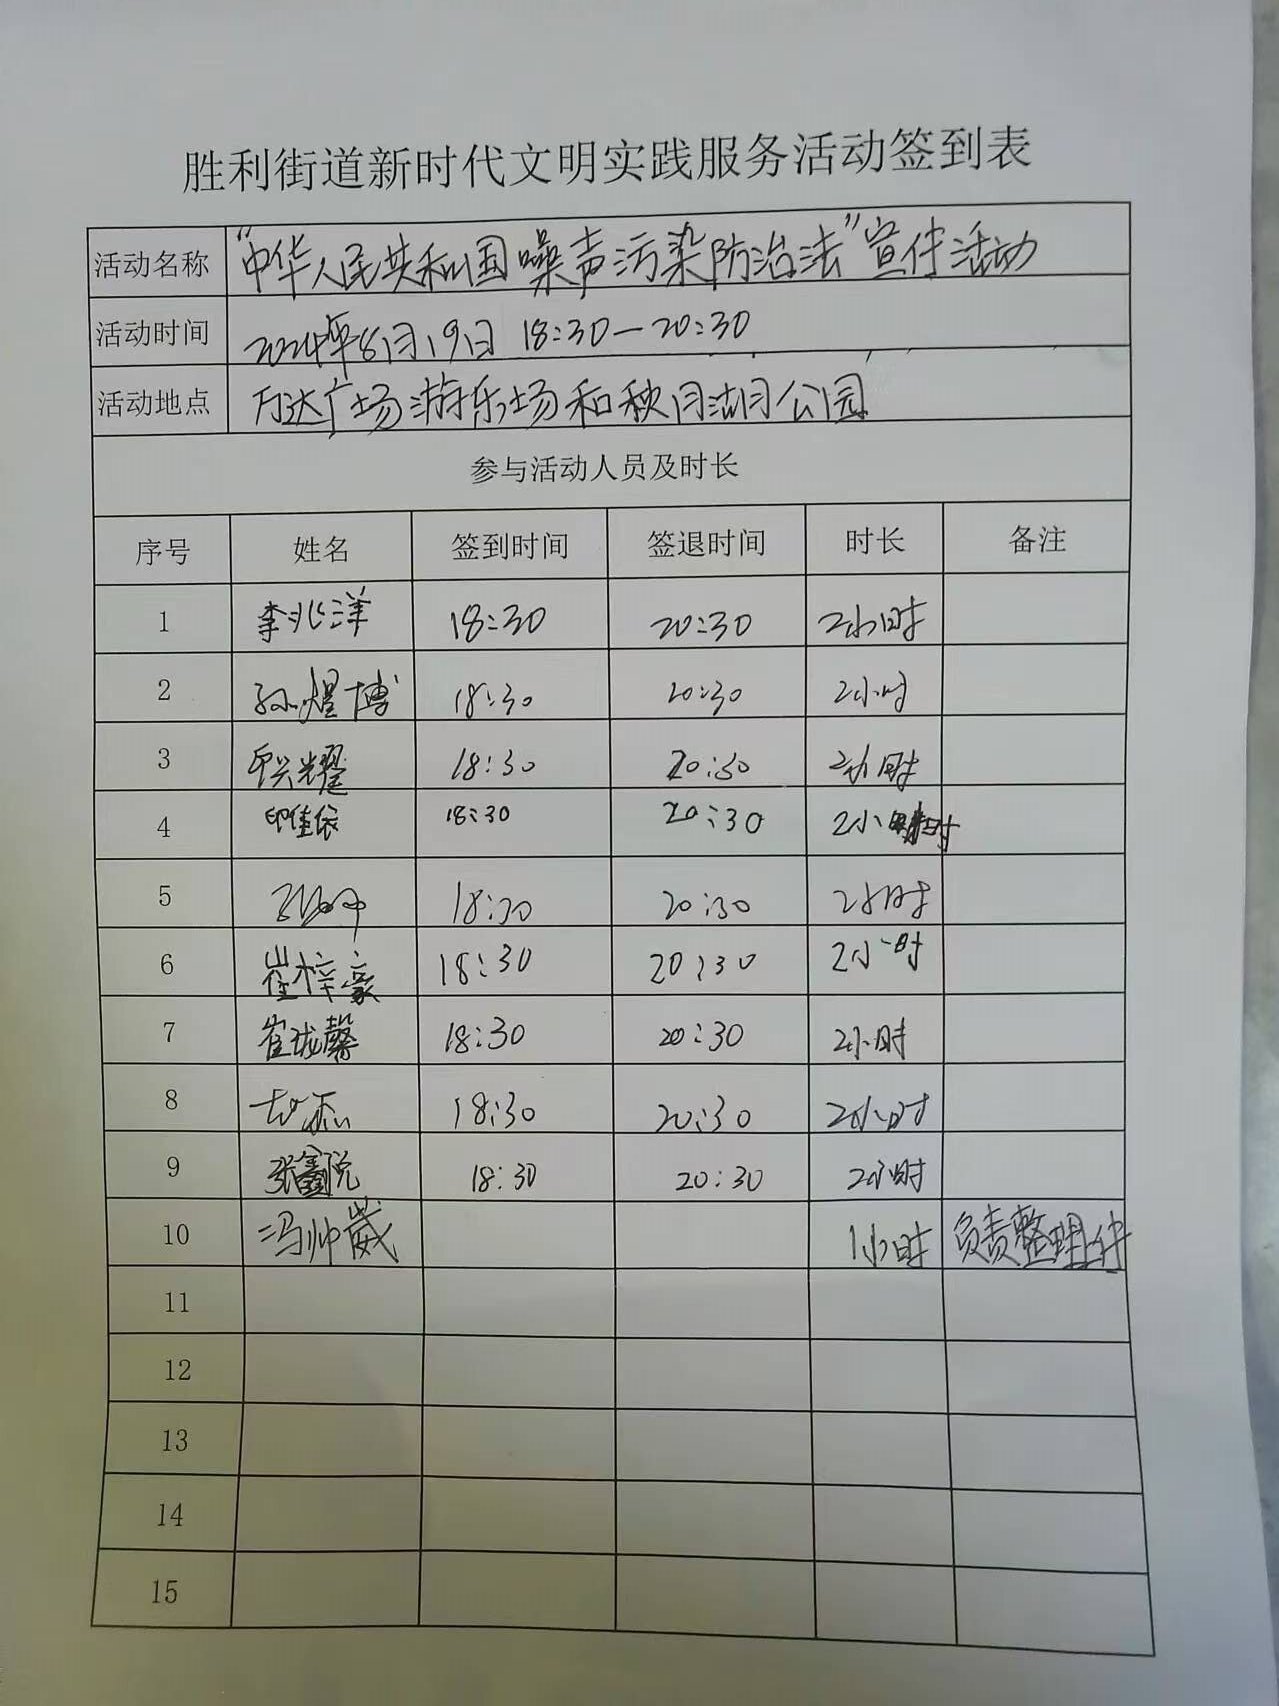 胜利街道新时代文明实践服务活动签到表
活动名称 “中华人民共和国噪声污染防治法”宣传活动
活动时间 2024年8月19日 18:30—20:30
活动地点 万达广场游乐场和秧月湖公园
参与活动人员及时长
序号 姓名 签到时间 签退时间 时长 备注
1 李兆洋 18:30 20:30 2小时
2 孙煜博 18:30 20:30 2小时
3 兴耀 18:30 20:30 2小时
4 印佳依 18:30 20:30 2小时
5 18:30 20:30 2小时
6 崔梓豪 18:30 20:30 2小时
7 崔珑馨 18:30 20:30 2小时
8 18:30 20:30 2小时
9 张鑫悦 18:30 20:30 2小时
10 冯帅崴 1小时 负责整理
11
12
13
14
15